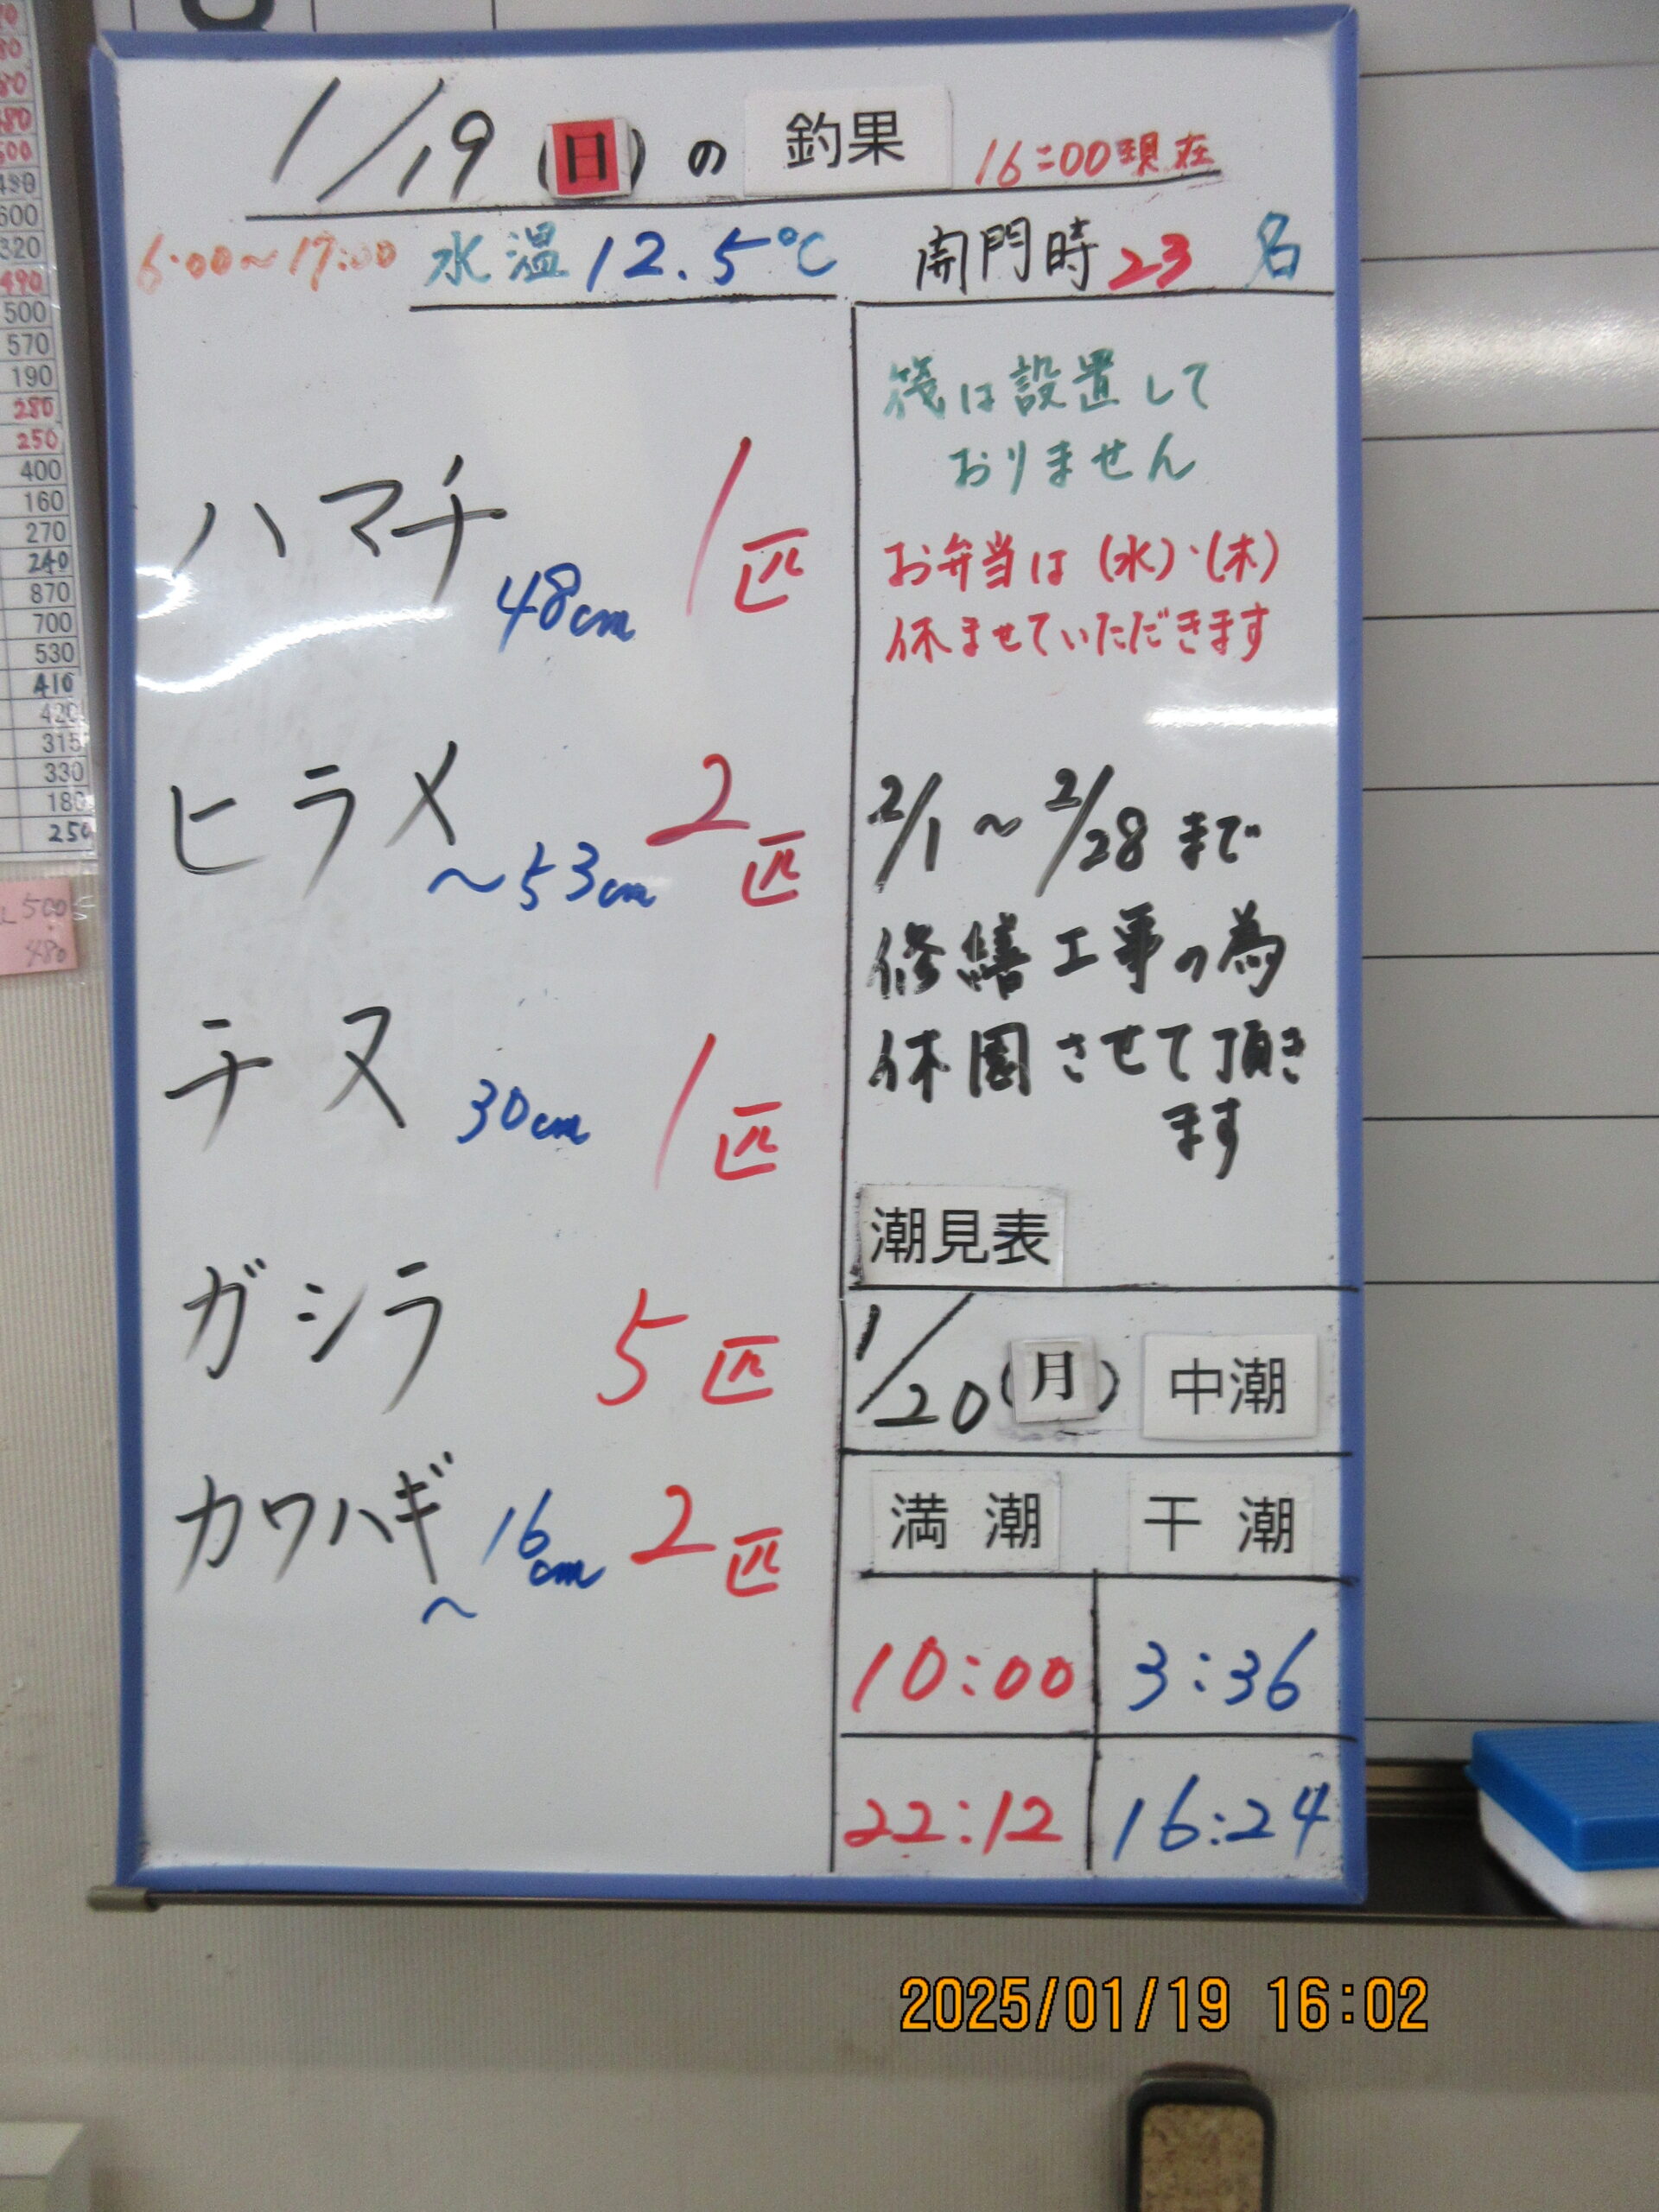 1/19(日)の釣果 16:00現在
6:00~17:00 水温12.5℃ 開門時23名
ハマチ 48cm 1匹
ヒラメ ~53cm 2匹
チヌ 30cm 1匹
ガシラ 5匹
カワハギ ~16cm 2匹
筏は設置して
おりません
お弁当は(水)・(木)
休ませていただきます
2/1~2/28まで
修繕工事の為
休園させて頂き
ます
潮見表
1/20(月) 中潮
満潮 干潮
10:00 3:36
22:12 16:24
2025/01/19 16:02
500
570
190
280
250
400
160
270
240
870
700
530
410
420
315
330
180
250